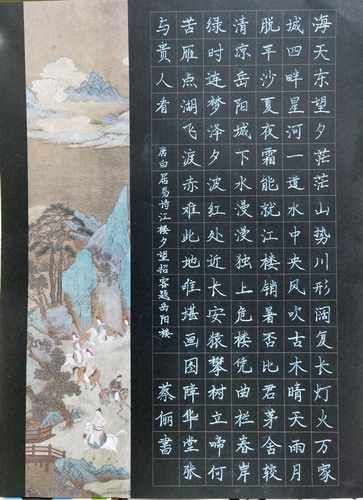 海天东望夕茫茫山势川形阔复长灯火万家
城四畔星河一道水中央风吹古木晴天雨月
脱平沙夏夜霜能就江楼销暑否比君茅舍较
清凉岳阳城下水漫漫独上危楼凭曲栏春岸
绿时连梦泽夕波红处近长安猿攀树立啼何
苦雁点湖飞渡赤难此地唯堪画图障华堂张
与贵人看
唐白居易诗江楼夕望招客题岳阳楼
蔡俪書